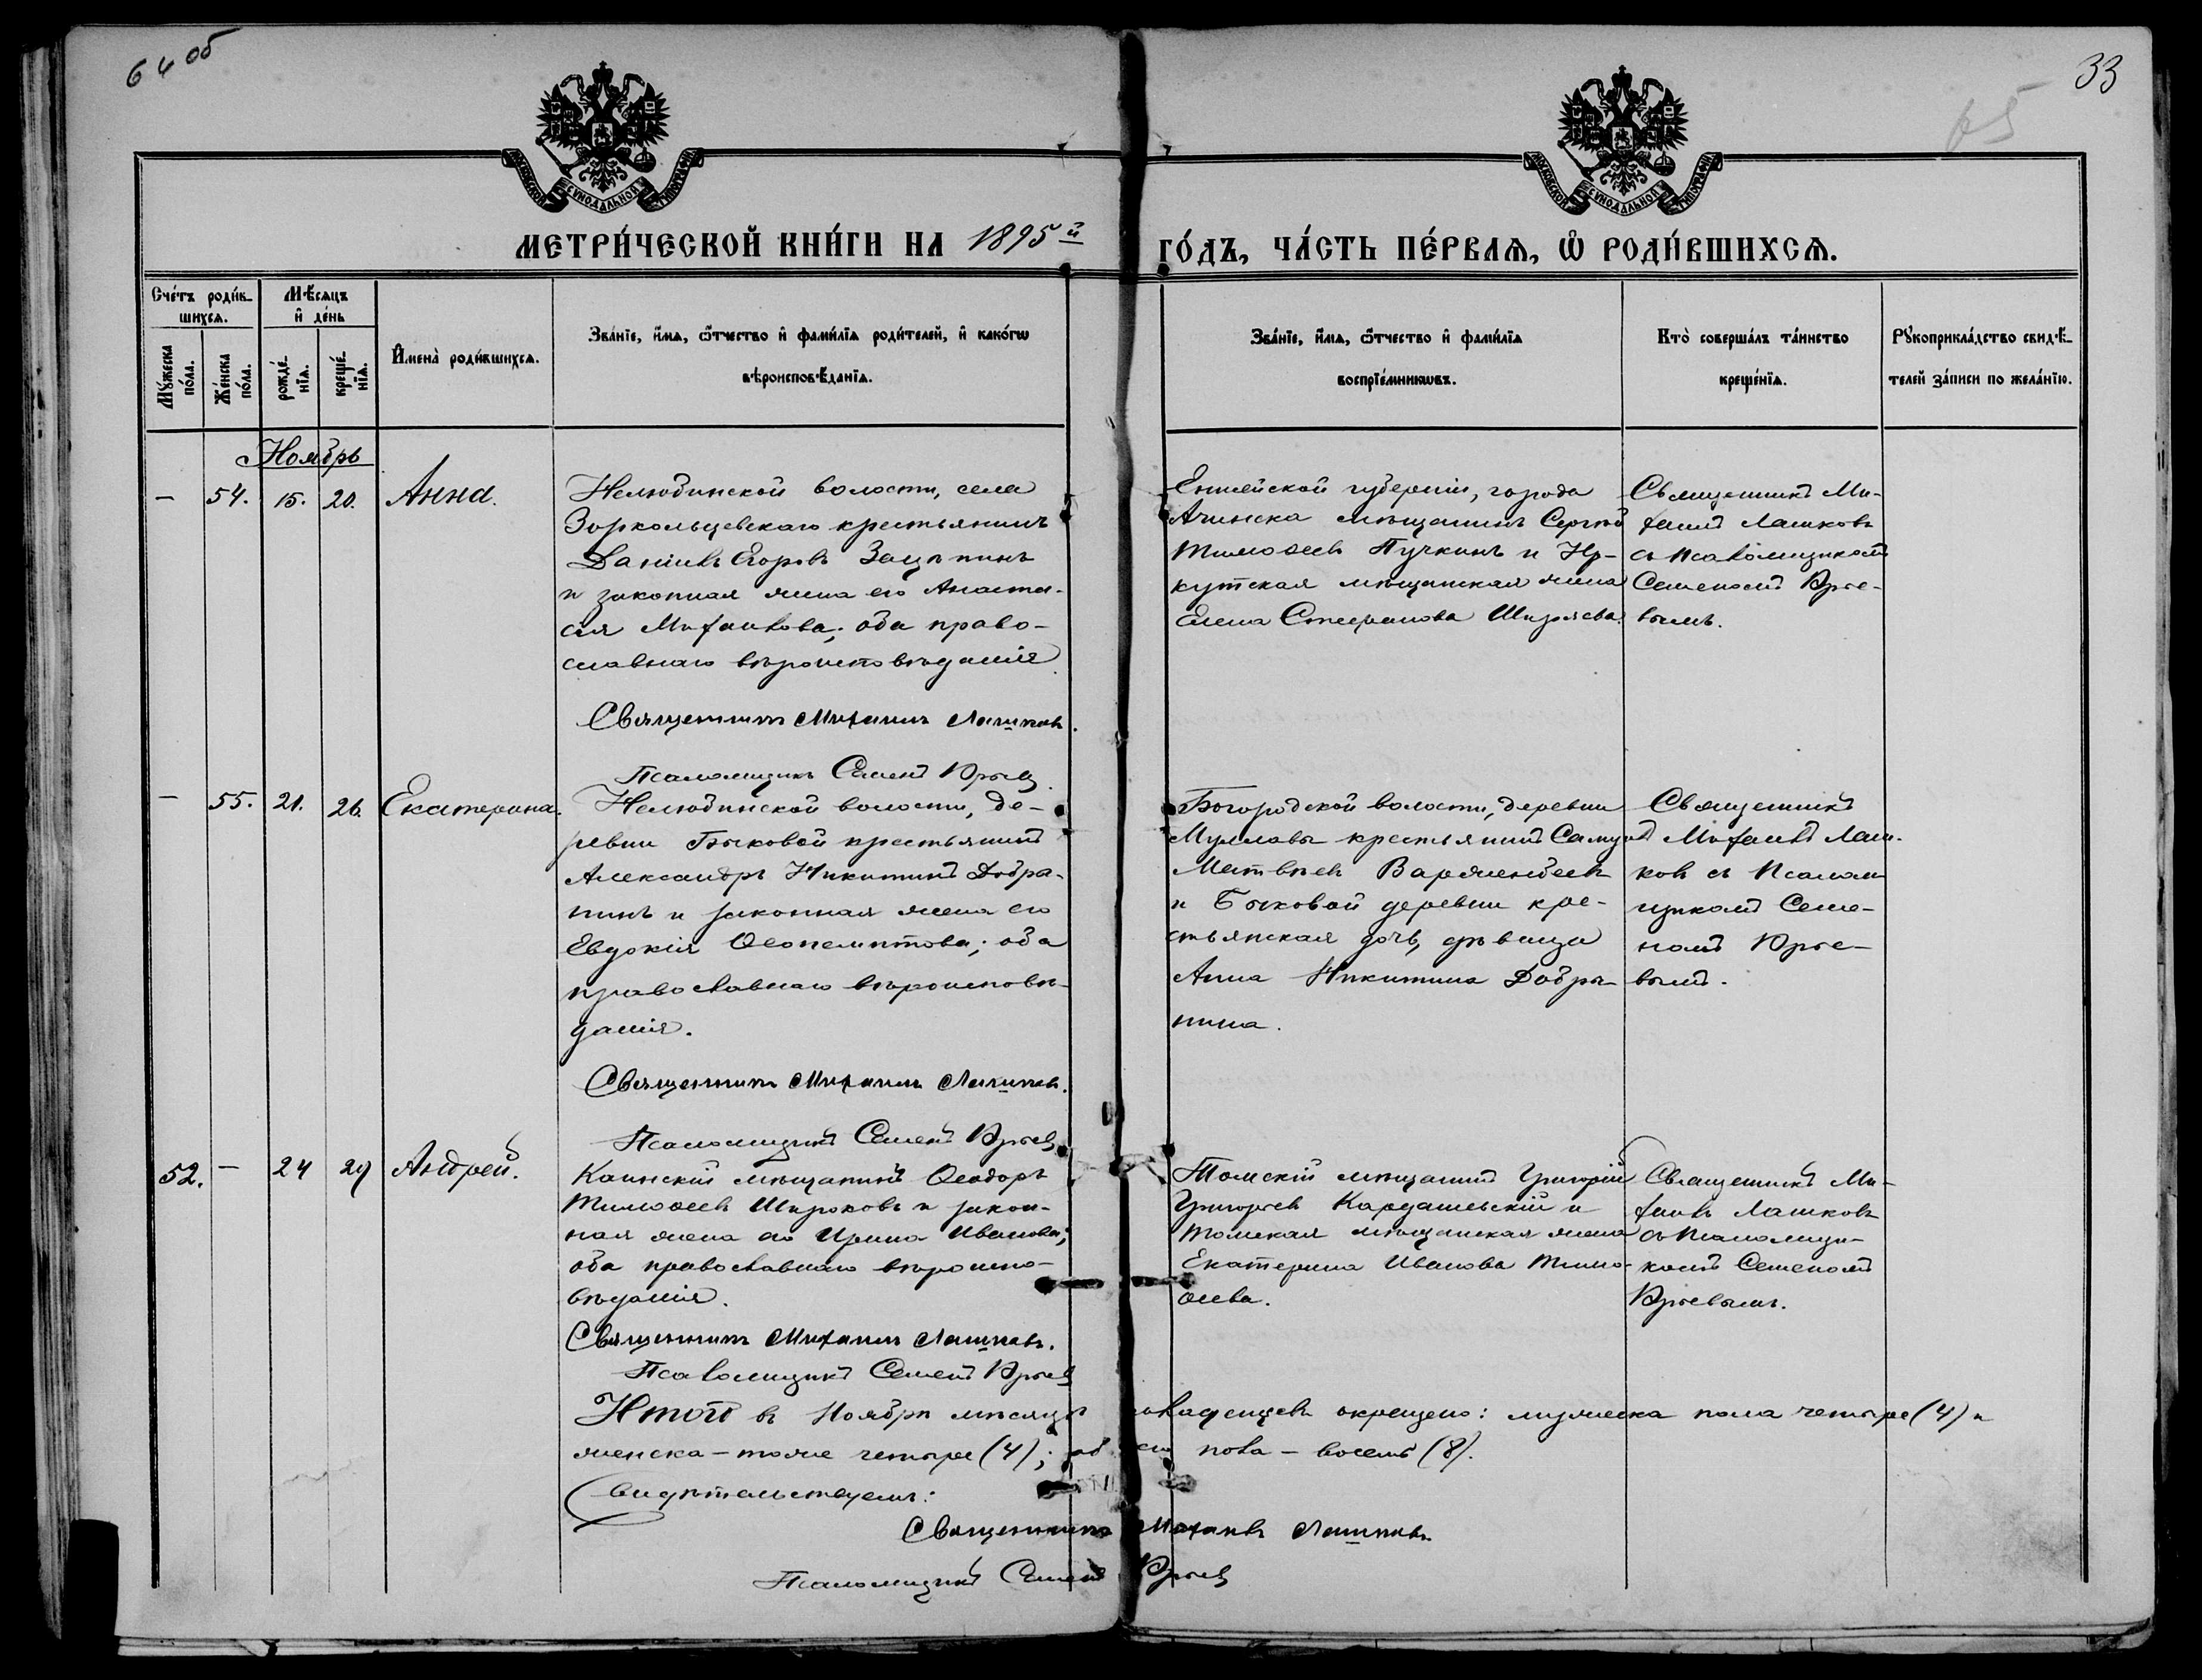 64 об
33
65
МОСКОВСКОЙ СѴНОДАЛЬНОЙ ТИПОГРАФІИ
МОСКОВСКОЙ СѴНОДАЛЬНОЙ ТИПОГРАФІИ
МЕТРИ́ЧЕСКОЙ КНИ́ГИ НА 1895й ГО́ДЪ, ЧА́СТЬ ПЕ́РВАѦ, Ѡ҆ РОДИ́ВШИХСѦ.
Сче́тъ роди́в-
шихсѧ.
Мѣ́сѧцъ
и҆ де́нь
Мꙋ́жеска
по́ла.
Же́нска
по́ла.
рожде́-
нїѧ.
креще́-
нїѧ.
И҆мена̀ роди́вшихсѧ.
Зва́нїе, и҆́мѧ, ѻ҆́тчество и҆ фами́лїѧ роди́телей, и҆ како́гѡ
вѣроисповѣ́данїѧ.
Зва́нїе, и҆́мѧ, ѻ҆́тчество и҆ фами́лїѧ
воспрїе́мникѡвъ.
Кто̀ соверша́лъ та́инство
креще́нїѧ.
Рꙋкоприкла́дство свидѣ́-
телей за́писи по жела́нїю.
Ноябрь
— 54. 15. 20. Анна.
Нелюбинской волости, села
Зоркольцевскаго крестьянинъ
Даніилъ Егоровъ Зацѣпинъ
и законная жена его Анаста-
сія Михаилова; оба право-
славнаго вѣроисповѣданія.
Священникъ Михаилъ Лашковъ.
Псаломщикъ Семенъ Юрьевъ
Енисейской губерніи, города
Ачинска мѣщанинъ Сергѣй
Тимоѳеевъ Пучкинъ и Ир-
кутская мѣщанская жена
Елена Стефанова Ширяева.
Священникъ Ми-
хаилъ Лашковъ
съ псаломщикомъ
Семеномъ Юрье-
вымъ.
— 55. 21. 26. Екатерина.
Нелюбинской волости, де-
ревни Быковой крестьянинъ
Александръ Никитинъ Добры-
нинъ и законная жена его
Евдокія Ѳеопемптова; оба
православнаго вѣроисповѣ-
данія.
Священникъ Михаилъ Лашковъ.
Псаломщикъ Семенъ Юрьевъ
Богородской волости, деревни
крестьянинъ Самуилъ
Матвѣевъ
и Быковой деревни кре-
стьянская дочь, дѣвица
Анна Никитина Добры-
нина.
Священникъ
Михаилъ Лаш-
ковъ съ псалом-
щикомъ Семе-
номъ Юрье-
вымъ.
52. — 24 29 Андрей.
Каинскій мѣщанинъ Ѳеодоръ
Тимоѳеевъ Широковъ и закон-
ная жена его Ирина Иванова;
оба православнаго вѣроиспо-
вѣданія.
Священникъ Михаилъ Лашковъ.
Псаломщикъ Семенъ Юрьевъ
Томскій мѣщанинъ Григорій
Григорьевъ Кардашевскій и
томская мѣщанская жена
Екатерина Иванова Тимо-
ѳеева.
Священникъ Ми-
хаилъ Лашковъ
съ псаломщи-
комъ Семеномъ
Юрьевымъ.
Итого въ Ноябрѣ мѣсяцѣ младенцевъ окрещено: мужеска пола четыре (4) и
женска – тоже четыре (4); обоего пола – восемь (8).
Свидѣтельствуемъ:
Священникъ Михаилъ Лашковъ
Псаломщикъ Семенъ Юрьевъ